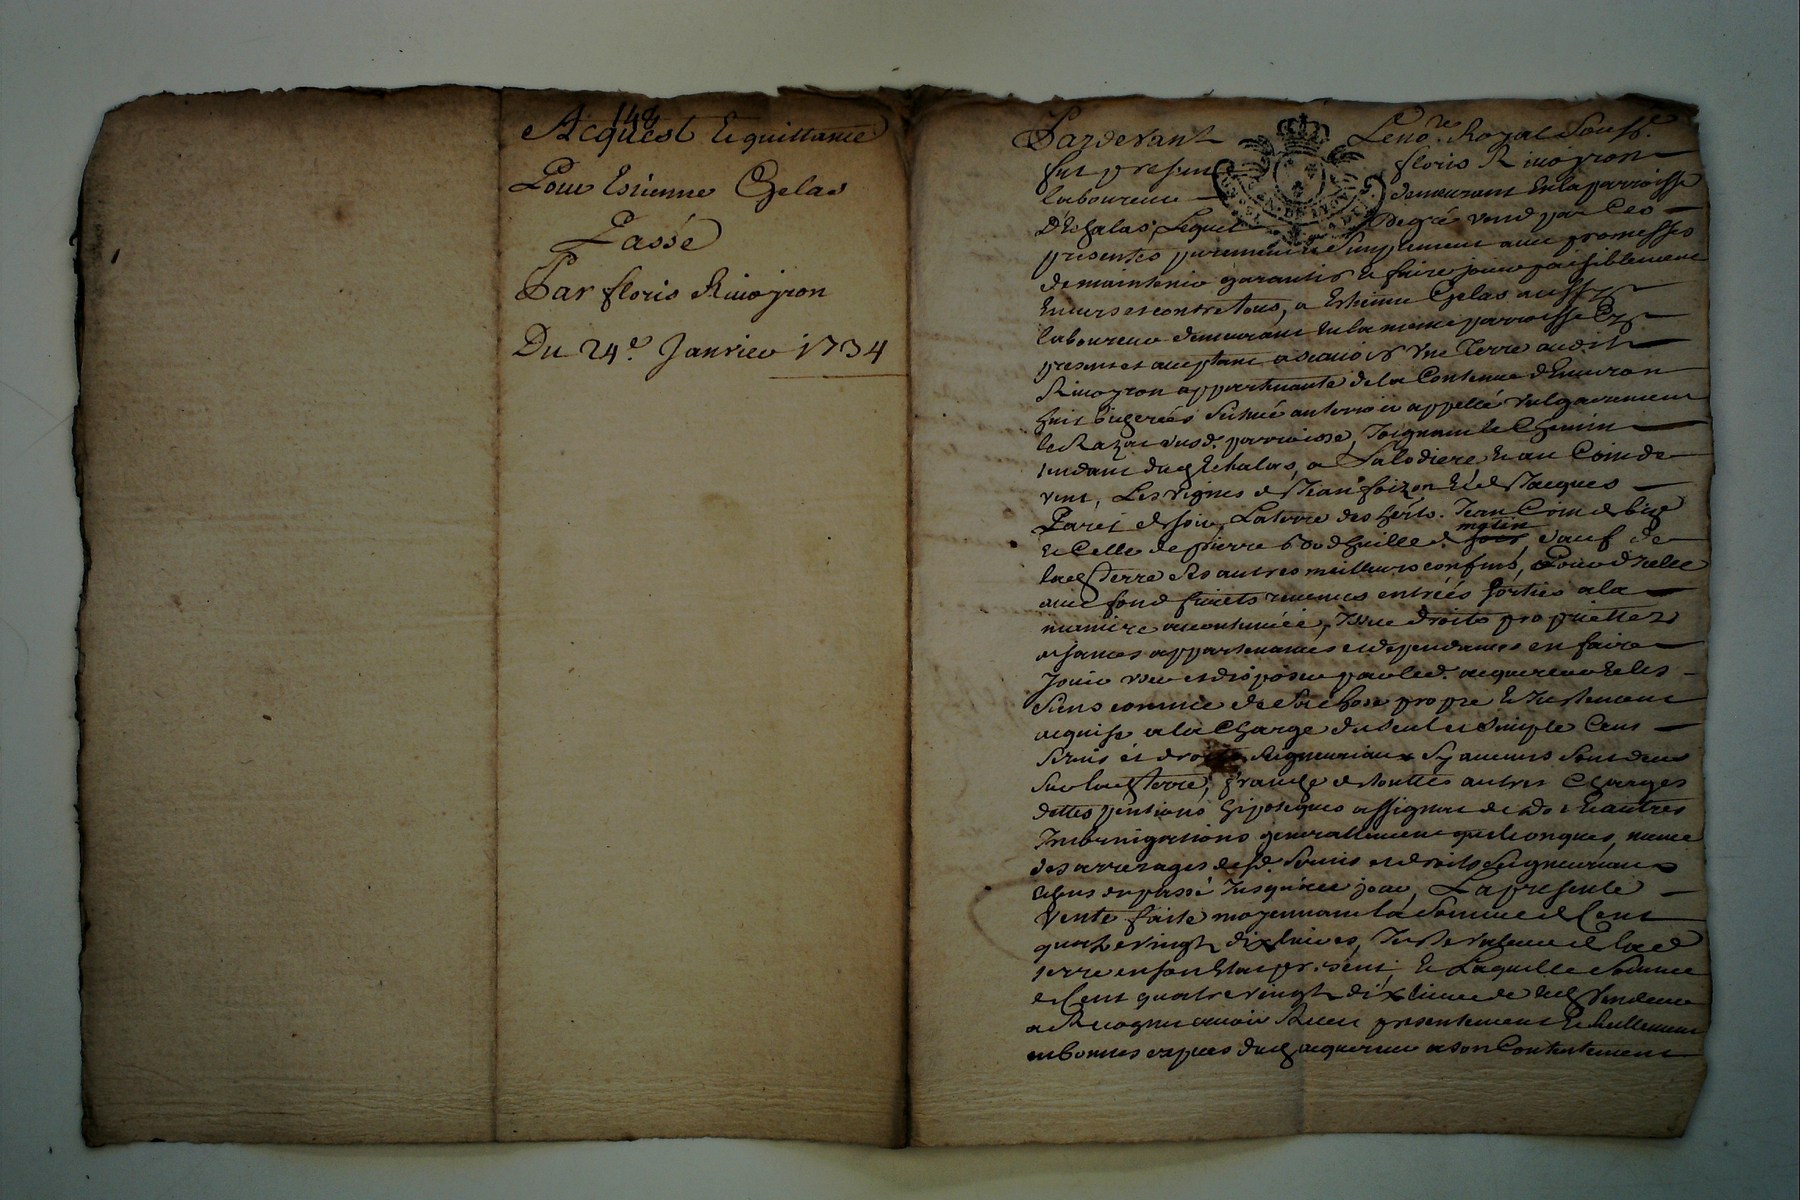 148
Acquest et quittance
Pour Estienne Gelas
Passé
Par floris Rivoyron
Du 24e. Janvier 1734
Pardevant Le no.re Royal Souss.é
fut present floris Rivoyron
laboureur demeurant en la parroisse
D'Echalas, Lequel De gré vend par Ces
presentes purement et Simplement avec promesses
de maintenir garantir et faire jouir paisiblement
Envers et contre tous, a Estienne Gelas aussy
laboureur demeurant en la meme parroisse Icy
present et acceptant ascavoir Une Terre audit
Rivoyron appartenante de la Contenue d'Environ
huit bicherées Scitué au terroir appellé vulgairement
le Razat susd. parroisse, Joignant le Chemin
tendant dud. Echalas, a Salodiere, et au Coin de
vent, Les vignes de Jean foizon et de Jacques
Paret de soir, La terre des herts. Jean Coin de bize
et Celle de pierre Bodhuille de matin sauf de
lad. Terre Ses autres meilleurs confins, Pour d'Icelle
avec fond fruits revenus entrées Sorties a la
maniere accoutumée, Issue droits proprietter
aisances appartenances et dependances en faire
Jouir user et disposer par led. acquereur et les
Siens comme de Sa chose propre et Justement
acquise a la Charge du seul et Simple Cens
Servis et droits Seigneuriaux Sy aucuns Sont deus
Sur lad. terre, franche de touttes autres Charges
dettes pentions hipoteques assignat de dot et autres
Imbrigations generallement quelconques, meme
des arrerages desd. Servis et droits Seigneuriaux
du passé Jusqu'a ce jour, La presente
Vente faite moyennant la Somme de Cent
quatre vingt dix livres, Juste valeur de lad.
terre en son Etat present, et Laquelle Somme
de Cent quatre vingt dix livres led. Vendeur
a Recognu avoir Receu presentement et Reellement
en bonnes especes dud. acquereur a son Contentement